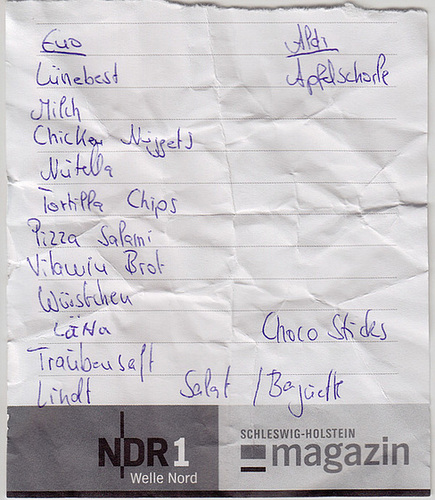 Euo Aldi
Lünebest Apfelschorle
Milch
Chicken Nuggets
Nutella
Tortilla Chips
Pizza Salami
Vitamin Brot
Würstchen
Lätta Choco Sticks
Traubensaft
Lindt Salat / Baguette
NDR1 SCHLESWIG-HOLSTEIN
Welle Nord magazin